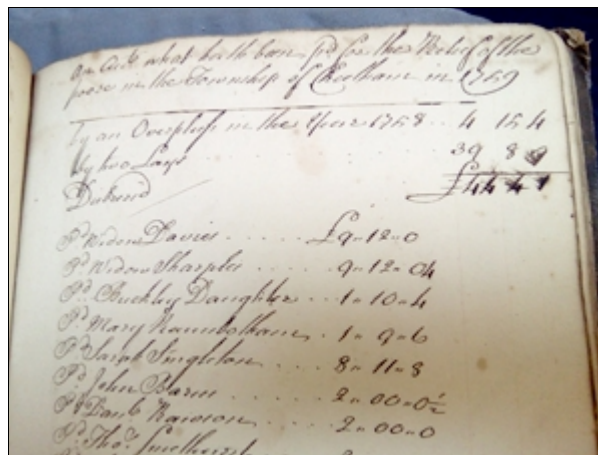 An Acct. what hath been pd for the Relief of the
poore in the Township of Cheetham in 1759
by an Overpluss in the Year 1758 .. 4 15 4
by two Lays ... 39 8 9
Disbursd £44 4 1
Pd. Widow Davies ..... £9-12-0
Pd. Widow Sharples .... 9-12-04
Pd. Buckley Daughter .. 1-10-4
Pd. Mary Ramsbotham . 1-9-6
Pd. Sarah Singleton ... 8-11-8
Pd. John Barm .... 2-00-0½
Pd. Danl. Rawson .... 2-00-0
Pd. Thos. Smethurst